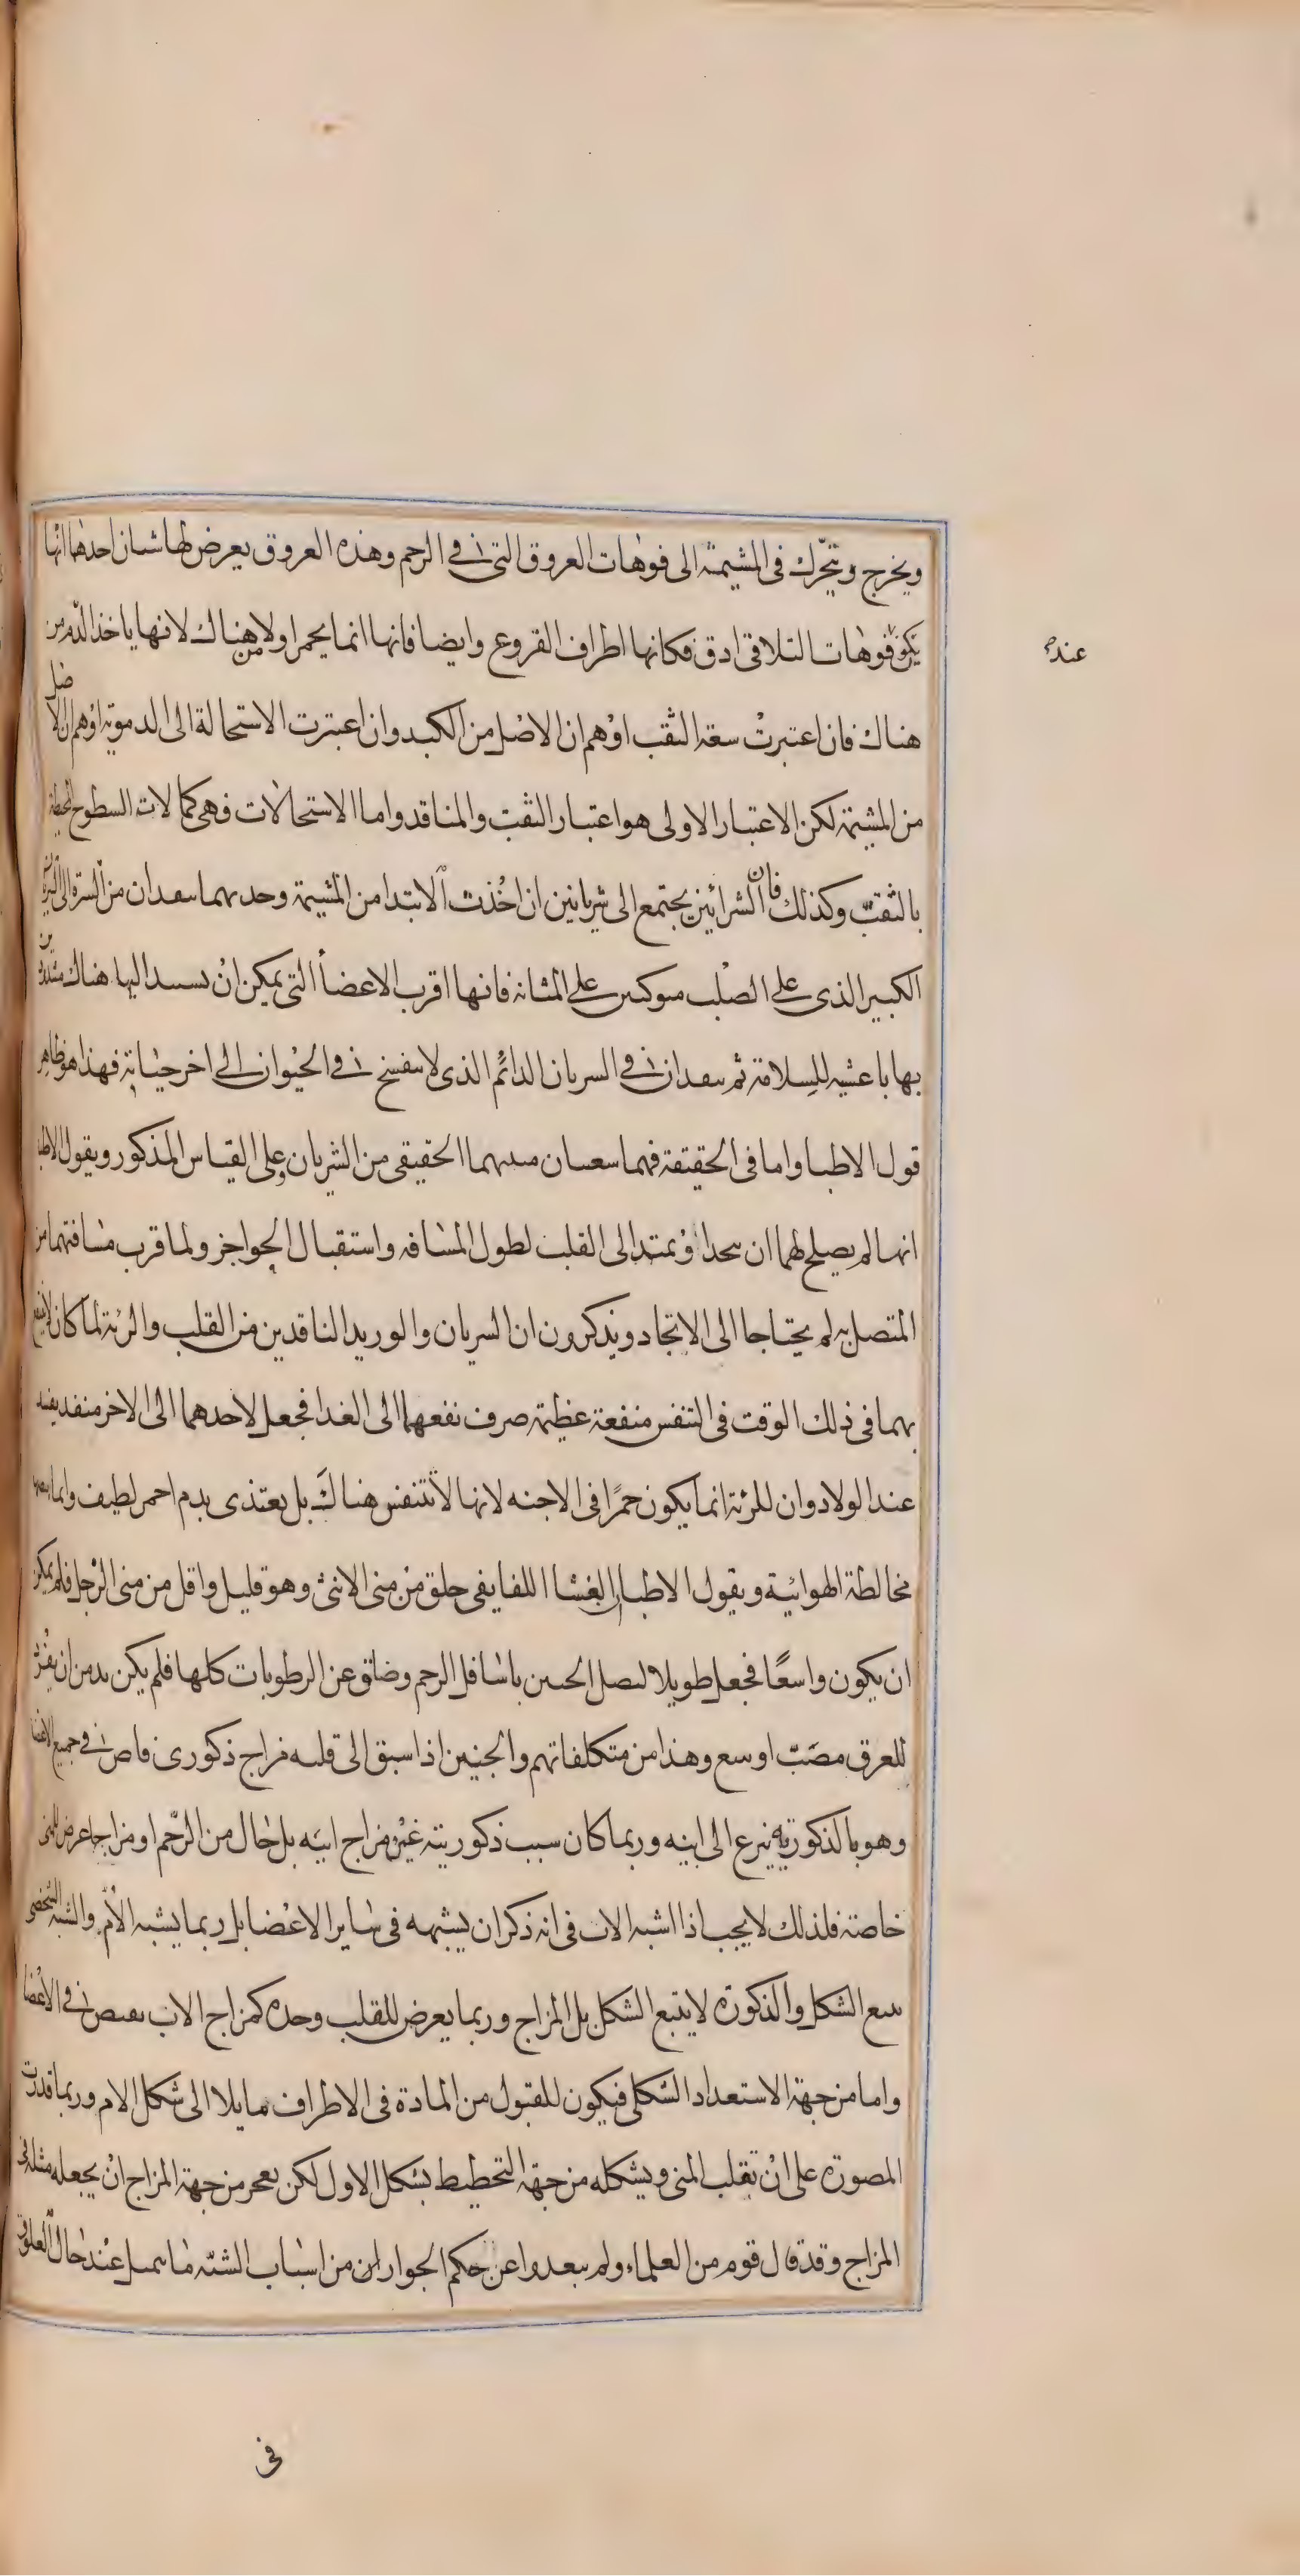 ويخرج ويتحرك فى المشيمة الى فوهات العروق التى فى الرحم وهذه العروق يعرض لها شيان احدها انها
يكون فوهات التلاقى ادق فكانها اطراف الفروع وايضا فانها انما يحمر اولا من هناك لانها ياخذ الدم من
عنده
هناك فان اعتبرت سعة الثقب اوهم ان الاصل من الكبد وان اعتبرت الاستحالة الى الدموية اوهم ان الاصل
من المشيمة لكن الاعتبار الاولى هو اعتبار الثقب والمنافد واما الاستحالات فهى كمالات السطوح المحيطة
بالثقب وكذلك فان الشرائين يجتمع الى شريانين ان اخذت الابتدا من المشيمة وحد بهما سعدان من السرة الى الشريان
الكبير الذى على الصلب متوكين على المثانه فانها اقرب الاعضأ التى يمكن ان يسند اليها هناك مشدودين
بها باغشيه للسلامة ثم سعدان فى السريان الدائم الذى لا ينفسخ فى الحيوان الى اخر حياته فهذا هو ظاهر
قول الاطبا واما فى الحقيقة فهما سعسان مبدهما الحقيقى من الشريان وعلى القياس المذكور ويقول الاطبا
انهما لم يصلح لهما ان يحدا ويمتد الى القلب لطول المسافه واستقبال الحواجز ولما قرب مسافتهما من
المتصل به لم يحتاجا الى الاتحاد ويذكرون ان الشريان والوريد النافدين من القلب والرئة لما كان لا ينتفع
بهما فى ذلك الوقت فى التنفس منفعة عظيمة صرف نفعهما الى الغدا فجعل لاحدهما الى الاخر منفد يفسد
عند الولاد وان للرئة انما يكون حمرًا فى الاجنه لانها لا يتنفس هناك بل يعتذى بدم احمر لطيف وانما
مخالطة الهوائية ويقول الاطبا ان الغشا اللفايفى خلق من منى الانثى وهو قليل واقل من منى الرجل فلم يمكن
ان يكون واسعًا فجعل طويلا ليصل الجنين باسافل الرحم وضاق عن الرطوبات كلها فلم يكن بد من ان يفرد
للعرق مصب اوسع وهذا من متكلفاتهم والجنين اذا سبق الى قلبه مزاج ذكورى فاض فى جميع الاعضا
وهو بالذكورية ينزع الى ابيه وربما كان سبب ذكوريته غير مزاج ابيه بل حال من الرحم او مزاجا عرض للمنى
خاصة فلذلك لا يجب اذا اشبه الاب فى انه ذكر ان يشبهه فى ساير الاعضا بل ربما يشبه الأم والشبه الشخصى
يتبع الشكل والذكورة لا يتبع الشكل بل المزاج وربما يعرض للقلب وحده كمزاج الاب يفيض فى الاعضا
واما من جهة الاستعداد الشكلى فيكون للقبول من المادة فى الاطراف مايلا الى شكل الام وربما قدرت
المصورة على ان تقلب المنى ويشكله من جهة التخطيط بشكل الاول لكن يعجز من جهة المزاج ان يجعله مثله فى
المزاج وقد قال قوم من العلماء ولم يبعدوا عن حكم الجواز ان من اسباب الشبه ما يتمثل عند حال العلوق
فى